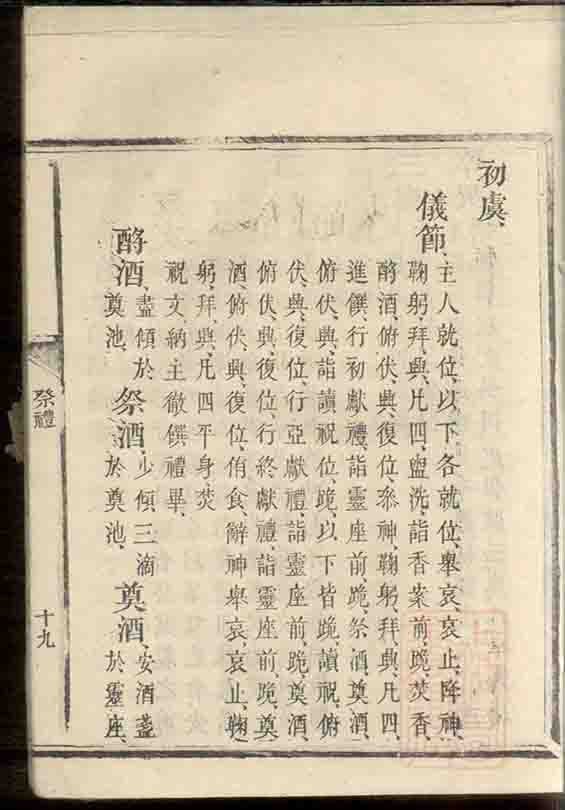 初虞、
儀節、主人就位、以下各就位、舉哀、哀止、降神、
鞠躬、拜、興、凡四、盥洗、詣香案前、跪、焚香、
酹酒、俯伏、興、復位、叅神、鞠躬、拜、興、凡四、
進饌、行初獻禮、詣靈座前、跪、祭酒、奠酒、
俯伏、興、詣讀祝位、跪、以下皆跪、讀祝、俯
伏、興、復位、行亞獻禮、詣靈座前、跪、奠酒、
俯伏、興、復位、行終獻禮、詣靈座前、跪、奠
酒、俯伏、興、復位、侑食、辭神、舉哀、哀止、鞠
躬、拜、興、凡四、平身、焚
祝文、納主、徹饌、禮畢、
酹酒、盡傾於奠池、祭酒、少傾三滴於奠池、奠酒、安酒盞於靈座、
祭禮
十九